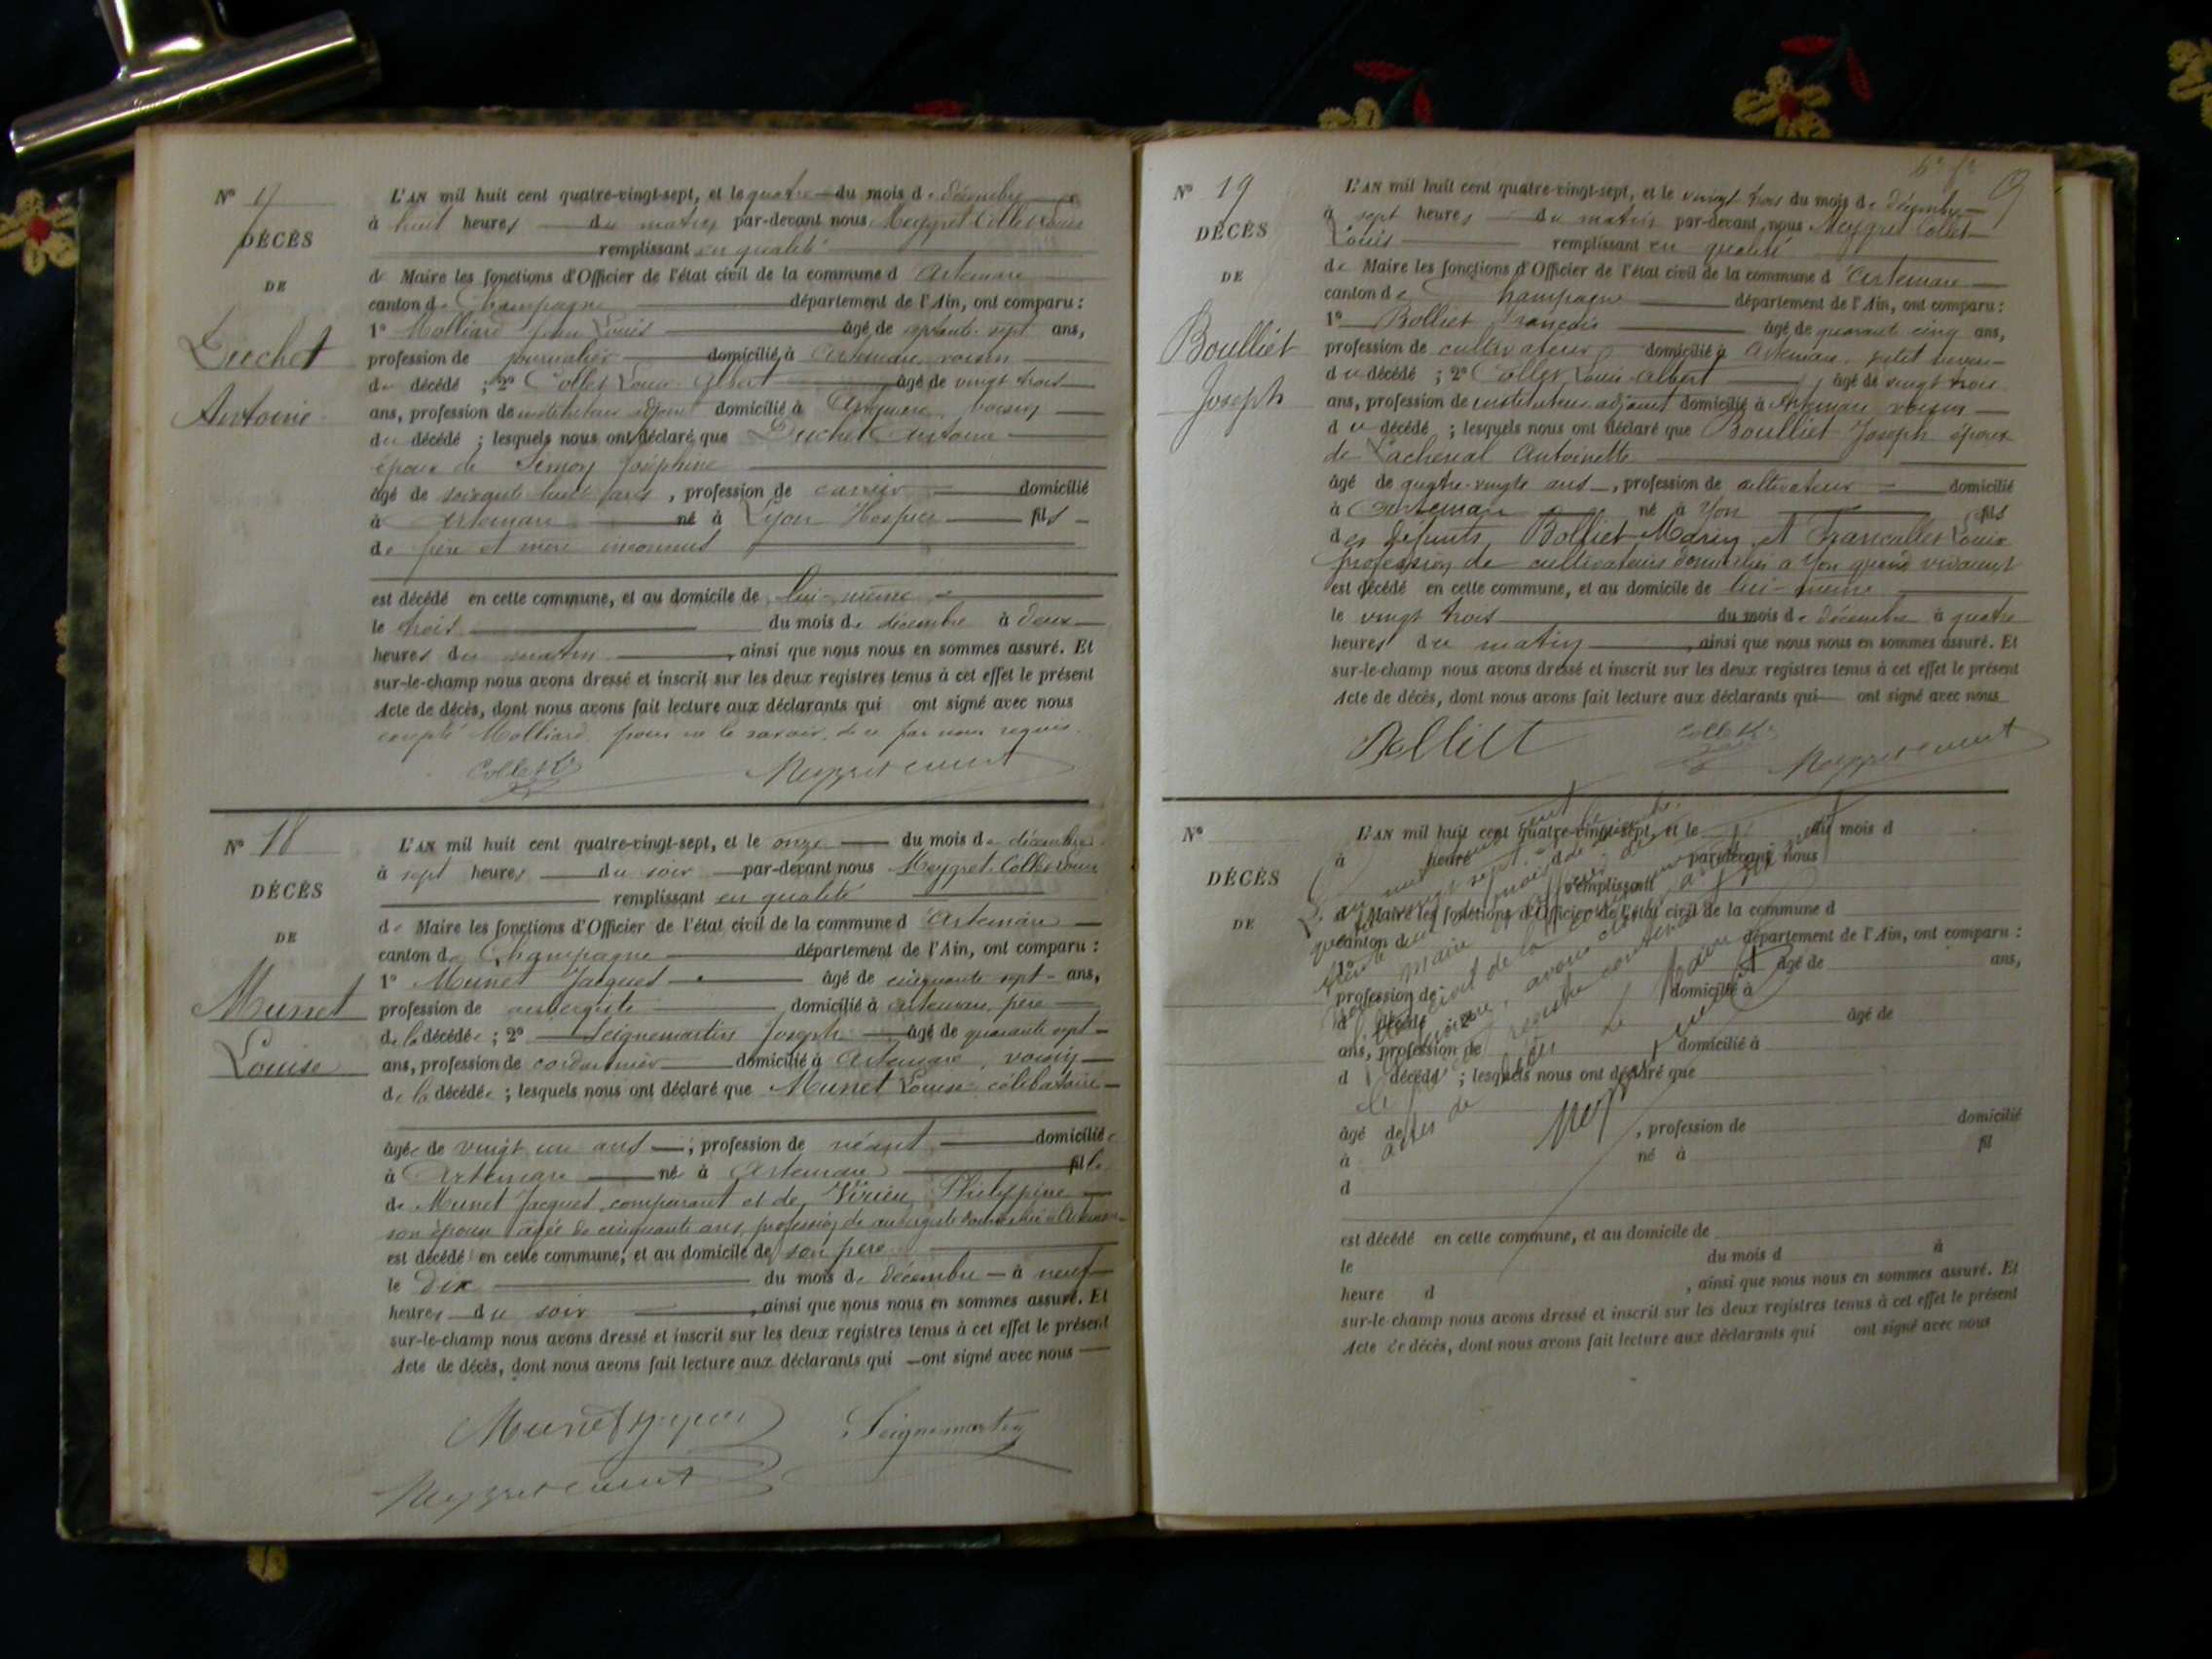 N° 17
DÉCÈS
DE
Duchet
Antoine
L'AN mil huit cent quatre-vingt-sept, et le quatre du mois de décembre
à huit heures du matin par-devant nous Meygret-Collet Louis
remplissant en qualité
de Maire les fonctions d'Officier de l'état civil de la commune d'Artemare
canton de Champagne département de l'Ain, ont comparu :
1° Molliard Jean Louis âgé de septante sept ans,
profession de journalier domicilié à Artemare voisin
du décédé ; 2° Collet Louis Albert âgé de vingt trois
ans, profession de instituteur adjoint domicilié à Artemare voisin
du décédé ; lesquels nous ont déclaré que Duchet Antoine
époux de Simon Joséphine
âgé de soixante huit ans, profession de carrier domicilié
à Artemare né à Lyon Hospice fils
de père et mère inconnus
est décédé en cette commune, et au domicile de lui-même
le trois du mois de décembre à deux
heures du matin, ainsi que nous nous en sommes assuré. Et
sur-le-champ nous avons dressé et inscrit sur les deux registres tenus à cet effet le présent
Acte de décès, dont nous avons fait lecture aux déclarants qui ont signé avec nous
excepté Molliard pour ne le savoir, de ce par nous requis.
Collet
Meygret Collet
N° 18
DÉCÈS
DE
Munet
Louise
L'AN mil huit cent quatre-vingt-sept, et le onze du mois de décembre
à sept heures du soir par-devant nous Meygret-Collet Louis
remplissant en qualité
de Maire les fonctions d'Officier de l'état civil de la commune d'Artemare
canton de Champagne département de l'Ain, ont comparu :
1° Munet Jacques âgé de cinquante sept ans,
profession de aubergiste domicilié à Artemare, père
de la décédée ; 2° Seignemartin Joseph âgé de quarante sept
ans, profession de cordonnier domicilié à Artemare, voisin
de la décédée ; lesquels nous ont déclaré que Munet Louise célibataire
âgée de vingt un ans ; profession de néant domiciliée
à Artemare née à Artemare fille
de Munet Jacques, comparant et de Virieu Philippine
son épouse âgée de cinquante ans, profession de aubergiste domiciliée à Artemare
est décédé en cette commune, et au domicile de son père
le dix du mois de décembre à neuf
heures du soir, ainsi que nous nous en sommes assuré. Et
sur-le-champ nous avons dressé et inscrit sur les deux registres tenus à cet effet le présent
Acte de décès, dont nous avons fait lecture aux déclarants qui ont signé avec nous
Munet Jacques
Seignemartin
Meygret Collet
9
N° 19
DÉCÈS
DE
Boulliet
Joseph
L'AN mil huit cent quatre-vingt-sept, et le vingt trois du mois de décembre
à sept heures du matin par-devant nous Meygret-Collet
Louis remplissant en qualité
de Maire les fonctions d'Officier de l'état civil de la commune d'Artemare
canton de Champagne département de l'Ain, ont comparu :
1° Bolliet François âgé de quarante cinq ans,
profession de cultivateur domicilié à Artemare petit neveu
du décédé ; 2° Collet Louis Albert âgé de vingt trois
ans, profession de instituteur adjoint domicilié à Artemare voisin
du décédé ; lesquels nous ont déclaré que Boulliet Joseph époux
de Lachenal Antoinette
âgé de quatre-vingts ans, profession de cultivateur domicilié
à Artemare né à Yon fils
des défunts Bolliet et Louise
profession de cultivateurs domiciliés à Yon quand vivaient
est décédé en cette commune, et au domicile de lui-même
le vingt trois du mois de décembre à quatre
heures du matin, ainsi que nous nous en sommes assuré. Et
sur-le-champ nous avons dressé et inscrit sur les deux registres tenus à cet effet le présent
Acte de décès, dont nous avons fait lecture aux déclarants qui ont signé avec nous
Bolliet
Collet
Meygret Collet
N°
DÉCÈS
DE
L'AN mil huit cent quatre-vingt-sept, et le du mois d
à heure d par-devant nous
remplissant
d Maire les fonctions d'Officier de l'état civil de la commune d
canton d département de l'Ain, ont comparu :
1° âgé de ans,
profession de domicilié à
d décédé ; 2° âgé de
ans, profession de domicilié à
d décédé ; lesquels nous ont déclaré que
âgé de , profession de domicilié
à né à fil
d
est décédé en cette commune, et au domicile de
le du mois d à
heure d , ainsi que nous nous en sommes assuré. Et
sur-le-champ nous avons dressé et inscrit sur les deux registres tenus à cet effet le présent
Acte de décès, dont nous avons fait lecture aux déclarants qui ont signé avec nous